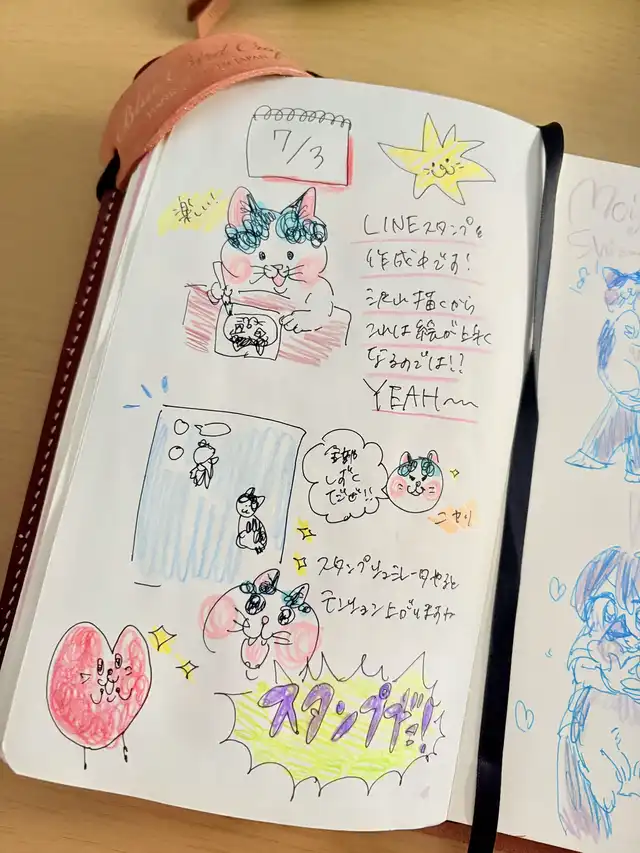 7/3
楽しい!
LINEスタンプを
作成中です!
沢山描くから
これは絵が上手く
なるのでは!?
YEAH〜〜
全部
しずく
だぜ!!
ニヤリ
スタンプシュミレータやると
テンション上がりますね
スタンプだ!!
Moi